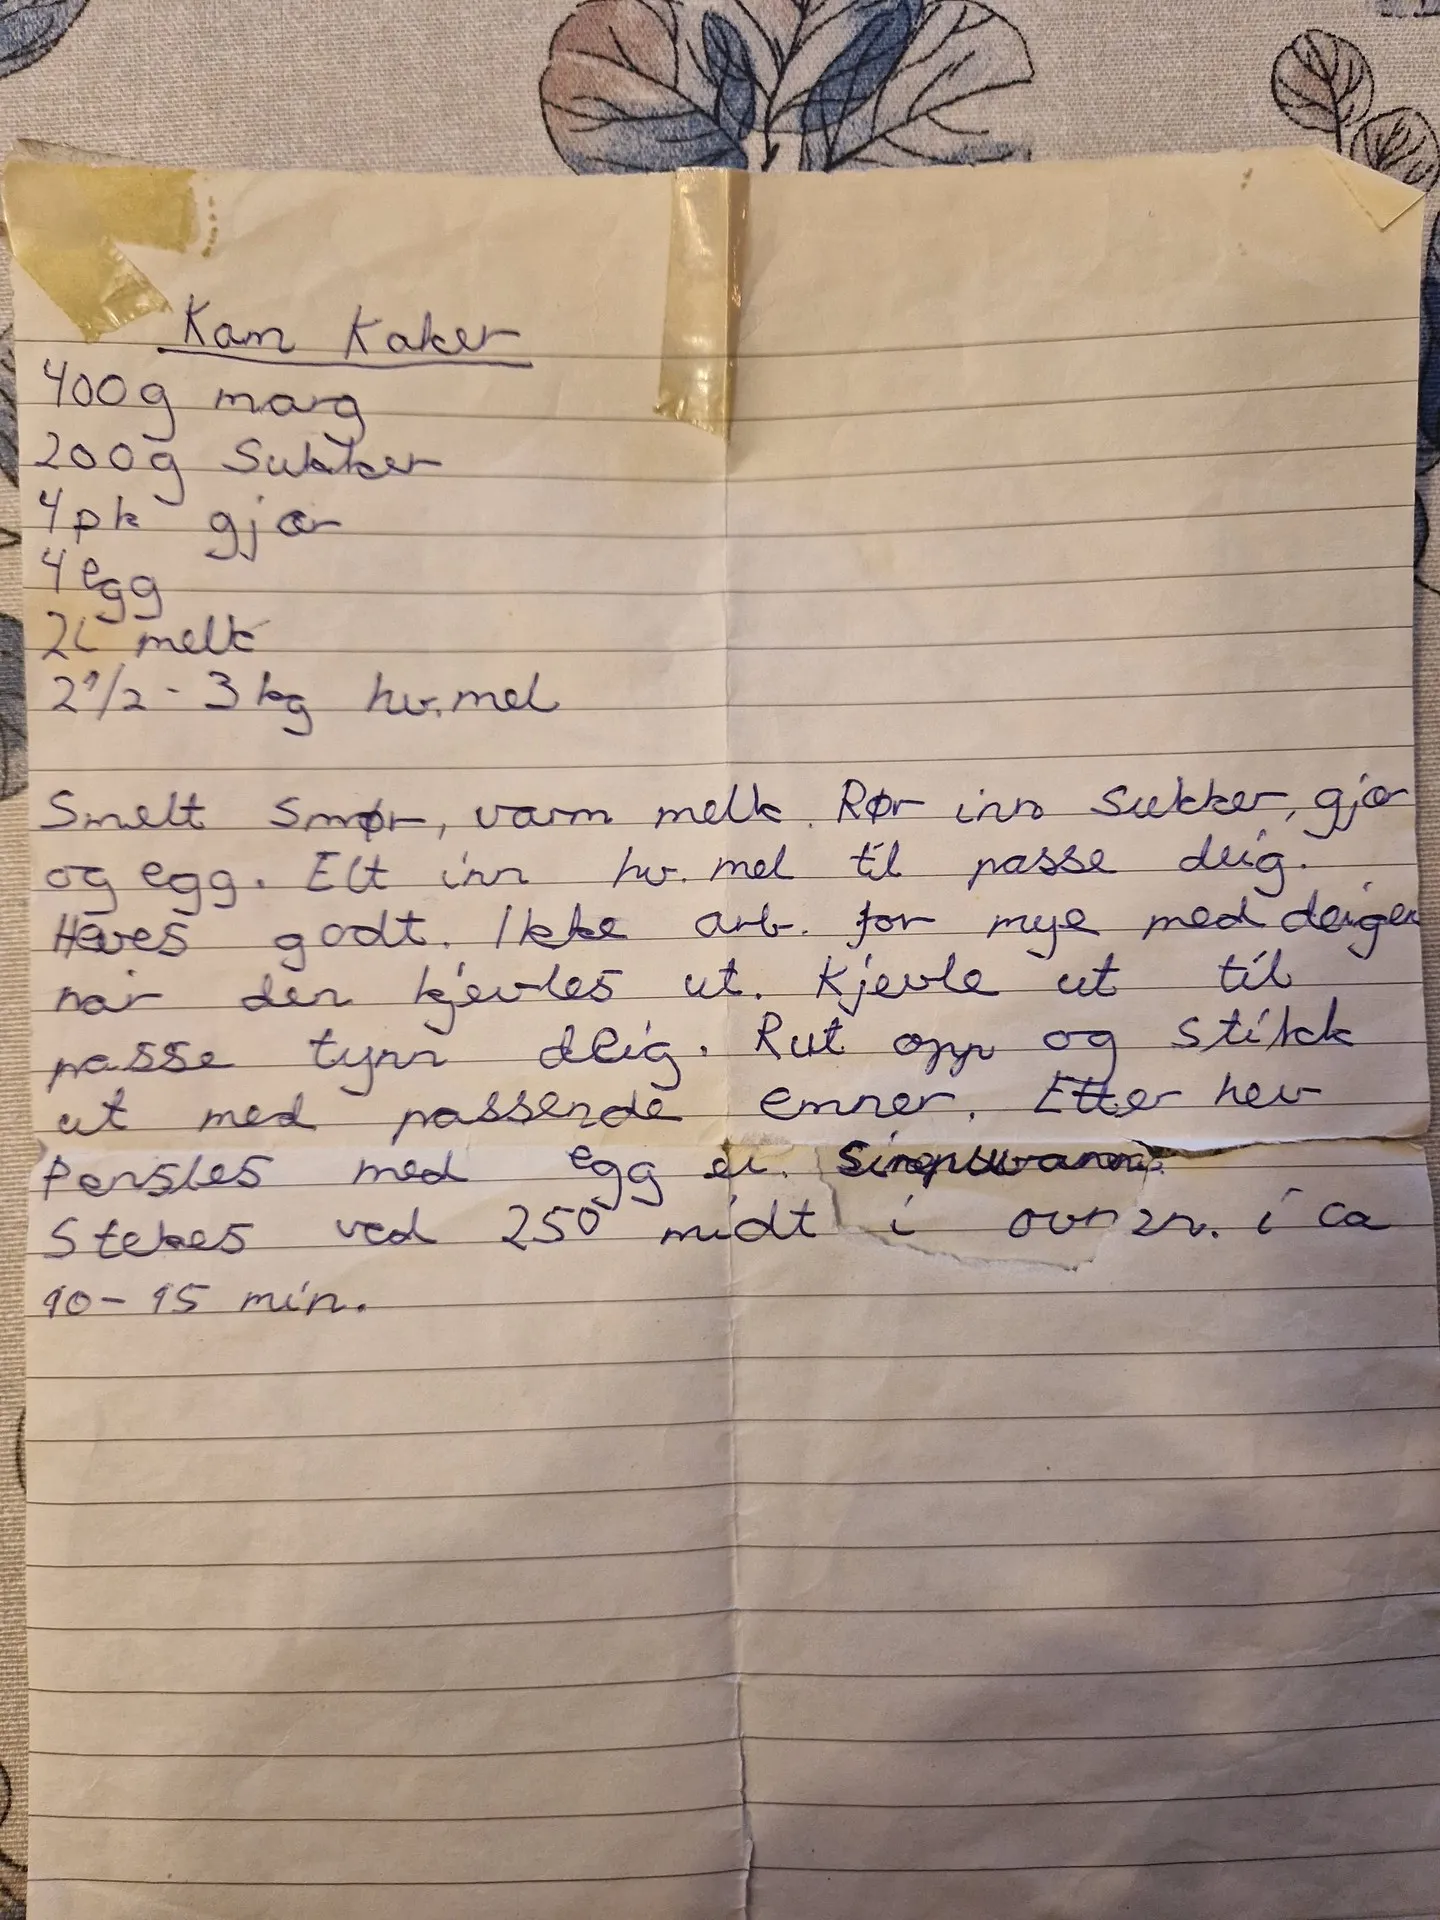 Kam Kaker
400g marg
200g Sukker
4pk gjær
4 egg
2L melk
2 1/2 - 3 kg hv. mel
Smelt smør, varm melk. Rør inn sukker, gjær
og egg. Elt inn hv. mel til passe deig.
Heves godt. Ikke arb. for mye med deigen
når den kjevles ut. Kjevle ut til
passe tynn deig. Rut opp og stikk
ut med passende emner. Etter hev
Pensles med egg el.
Stekes ved 250° midt i ovnen. i ca
10-15 min.